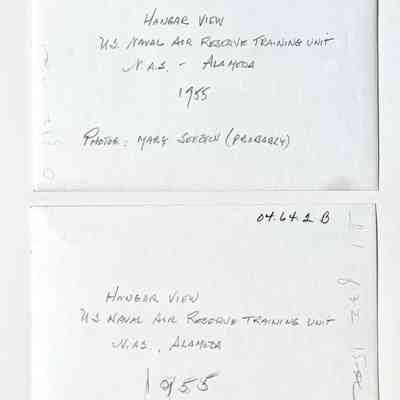 HANGAR VIEW
U.S. NAVAL AIR RESERVE TRAINING UNIT
N.A.S. - ALAMEDA
1955
PHOTOR: MARY (PROBABLY)
04.64.2 B
HANGAR VIEW
U.S NAVAL AIR RESERVE TRAINING UNIT
N.A.S., ALAMEDA
1955